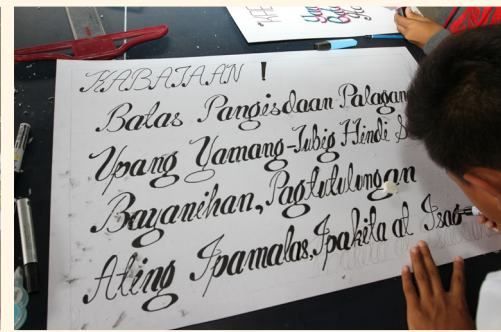 KABATAAN !
Batas Pangisdaan Palagan
Upang Yamang-Tubig Hindi
Bayanihan, Pagtutulungan
Ating Ipamalas, Ipakita at